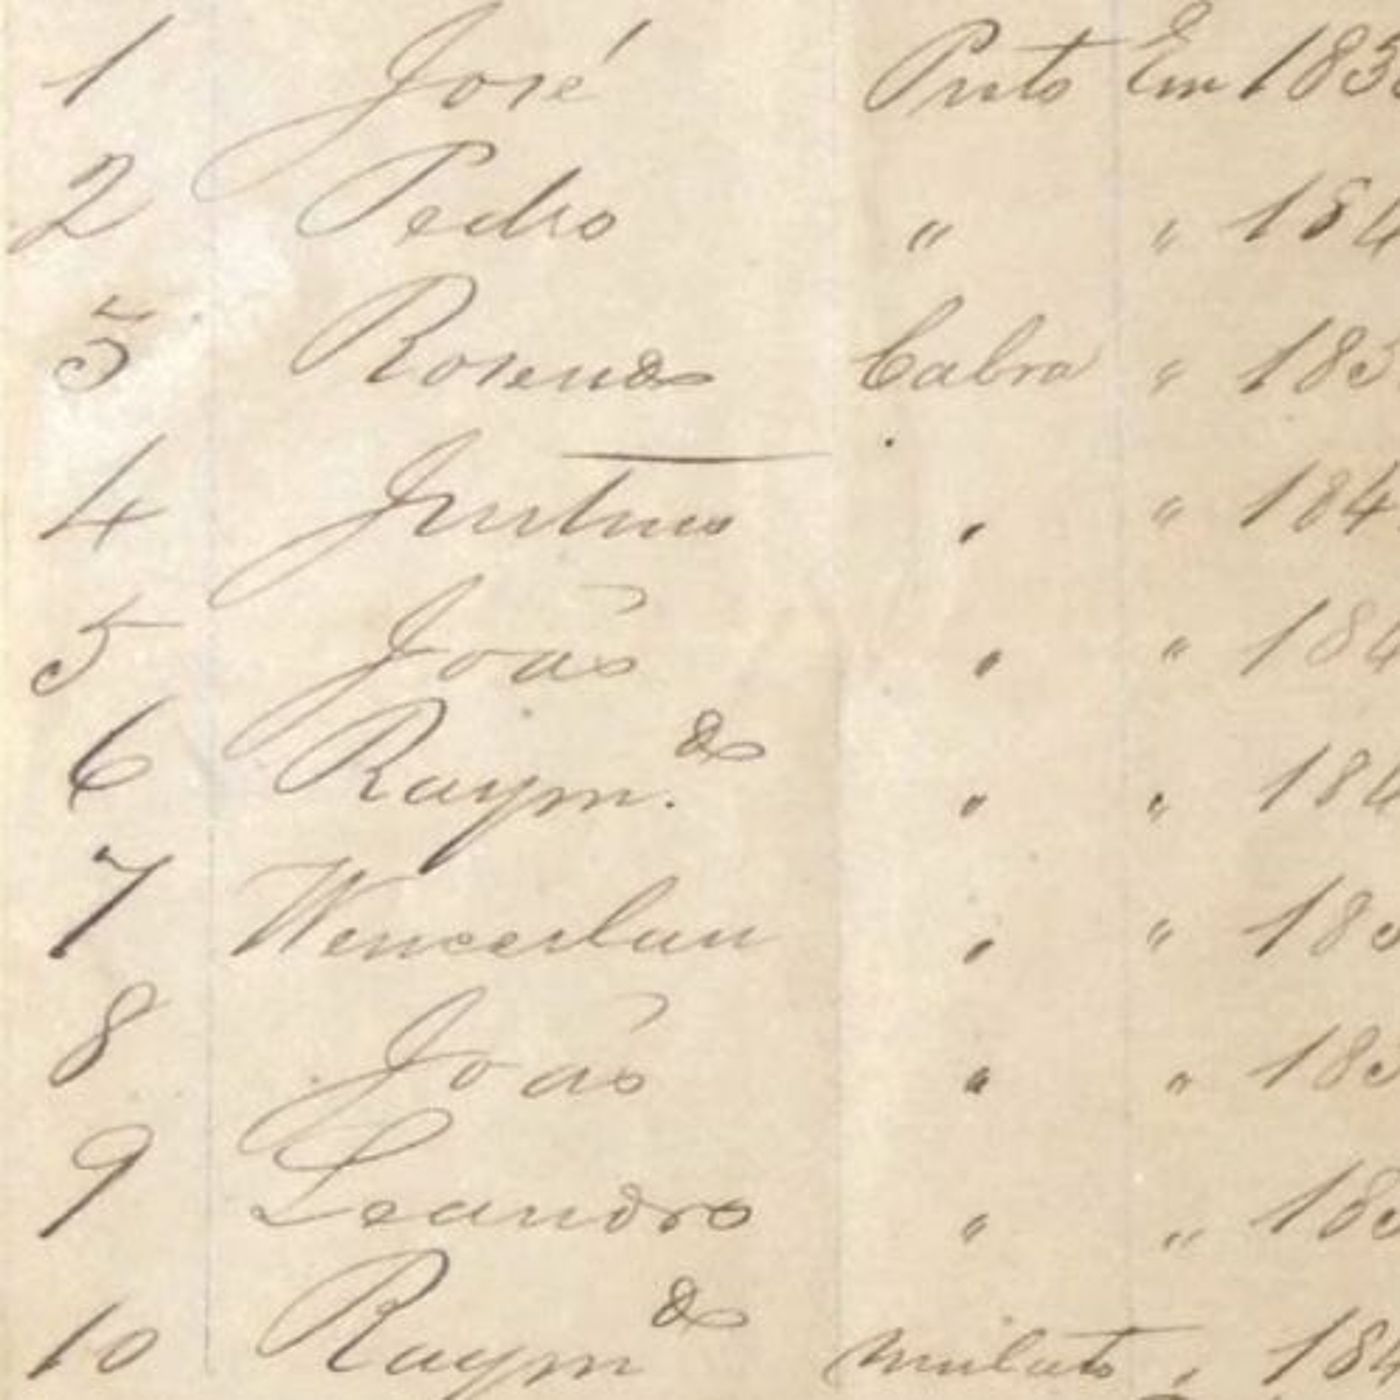 1 José Preto Em 183
2 Pedro " " 184
3 Rosendo Cabra " 183
4 Justino " " 184
5 João " " 184
6 Raym.do " " 184
7 Wenceslau " " 183
8 João " " 183
9 Leandro " " 183
10 Raymdo mulato " 184